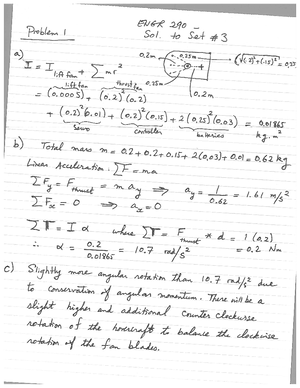 ENGR 290 -
Problem 1
Sol. to Set #3
a)
0,2m
0,25m
I = I lift fan + Σ m r²
lift fan
thrust fan
0,25m
0,2m
= (0.0005) + (0.2)²(0.2)
+ (0.2)²(0.01) + (0.2)²(0.15) + 2(0.25)²(0.03) = 0.01865
servo controller batteries kg.m²
b) Total mass m = 0.2 + 0.2 + 0.15 + 2(0.03) + 0.01 = 0.62 kg
Linear Acceleration: ΣF = ma
ΣFy = F thrust = m ay ⇒ ay = 1/0.62 = 1.61 m/s²
ΣFx = 0 ⇒ ax = 0
ΣT = I α where ΣT = F thrust * d = 1 (0.2)
= 0.2 Nm
∴ α = 0.2/0.01865 = 10.7 rad/s²
c) Slightly more angular rotation than 10.7 rad/s² due
to conservation of angular momentum. There will be a
slight higher and additional counter clockwise
rotation of the hovercraft to balance the clockwise
rotation of the fan blades.